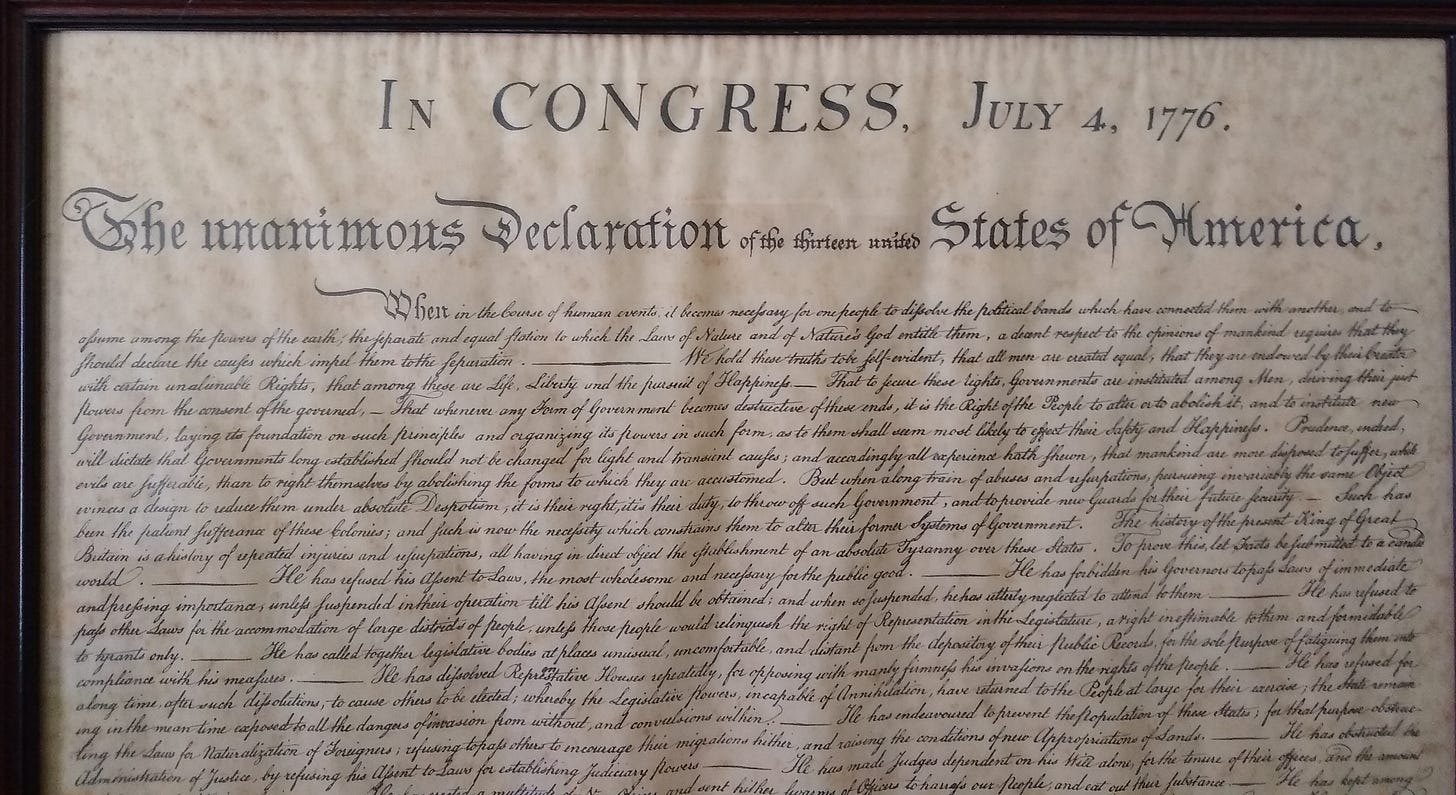 In CONGRESS, July 4, 1776.
The unanimous Declaration of the thirteen united States of America,
When in the Course of human events, it becomes necessary for one people to dissolve the political bands which have connected them with another, and to
assume among the powers of the earth, the separate and equal station to which the Laws of Nature and of Nature's God entitle them, a decent respect to the opinions of mankind requires that they
should declare the causes which impel them to the separation. — We hold these truths to be self-evident, that all men are created equal, that they are endowed by their Creator
with certain unalienable Rights, that among these are Life, Liberty and the pursuit of Happiness. — That to secure these rights, Governments are instituted among Men, deriving their just
powers from the consent of the governed, — That whenever any Form of Government becomes destructive of these ends, it is the Right of the People to alter or to abolish it, and to institute new
Government, laying its foundation on such principles and organizing its powers in such form, as to them shall seem most likely to effect their Safety and Happiness. Prudence, indeed,
will dictate that Governments long established should not be changed for light and transient causes; and accordingly all experience hath shewn, that mankind are more disposed to suffer, while
evils are sufferable, than to right themselves by abolishing the forms to which they are accustomed. But when a long train of abuses and usurpations, pursuing invariably the same Object
evinces a design to reduce them under absolute Despotism, it is their right, it is their duty, to throw off such Government, and to provide new Guards for their future security. — Such has
been the patient sufferance of these Colonies; and such is now the necessity which constrains them to alter their former Systems of Government. The history of the present King of Great
Britain is a history of repeated injuries and usurpations, all having in direct object the establishment of an absolute Tyranny over these States. To prove this, let Facts be submitted to a candid
world. — He has refused his Assent to Laws, the most wholesome and necessary for the public good. — He has forbidden his Governors to pass Laws of immediate
and pressing importance, unless suspended in their operation till his Assent should be obtained; and when so suspended, he has utterly neglected to attend to them. — He has refused to
pass other Laws for the accommodation of large districts of people, unless those people would relinquish the right of Representation in the Legislature, a right inestimable to them and formidable
to tyrants only. — He has called together legislative bodies at places unusual, uncomfortable, and distant from the depository of their Public Records, for the sole purpose of fatiguing them into
compliance with his measures. — He has dissolved Representative Houses repeatedly, for opposing with manly firmness his invasions on the rights of the people. — He has refused for
a long time, after such dissolutions, to cause others to be elected; whereby the Legislative powers, incapable of Annihilation, have returned to the People at large for their exercise; the State remain
ing in the mean time exposed to all the dangers of invasion from without, and convulsions within. — He has endeavoured to prevent the population of these States; for that purpose obstruc
ting the Laws for Naturalization of Foreigners; refusing to pass others to encourage their migrations hither, and raising the conditions of new Appropriations of Lands. — He has obstructed the
Administration of Justice, by refusing his Assent to Laws for establishing Judiciary powers. — He has made Judges dependent on his Will alone, for the tenure of their offices, and the amount
and sent hither swarms of Officers to harrass our People, and eat out their substance. — He has kept among